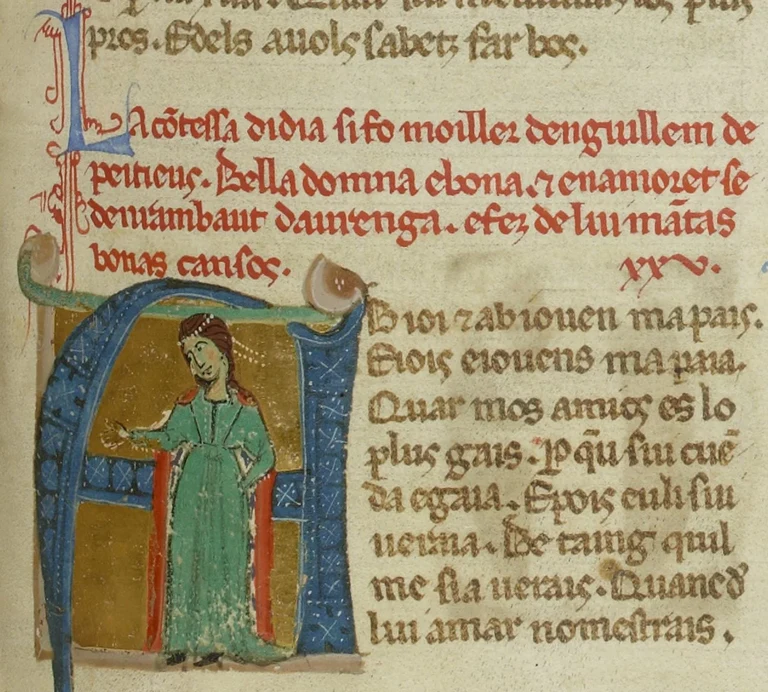 pros. Edels auols sabetz far bos.
La cõtessa didia si fo moiller denguillem de
peitieus. Bella domna ebona. ⁊ enamoret se
denrambaut daurenga. efez de lui mãtas
bonas cansos. xxv.
Ab ioi ⁊ab iouen mapais.
Eiois eiouens mapaia.
Quar mos amics es lo
plus gais. P q̃u sui cuẽ
da egaia. Epois euli sui
ueraia. Be taing quil
me sia uerais. Quanc d
lui amar nomestrais.